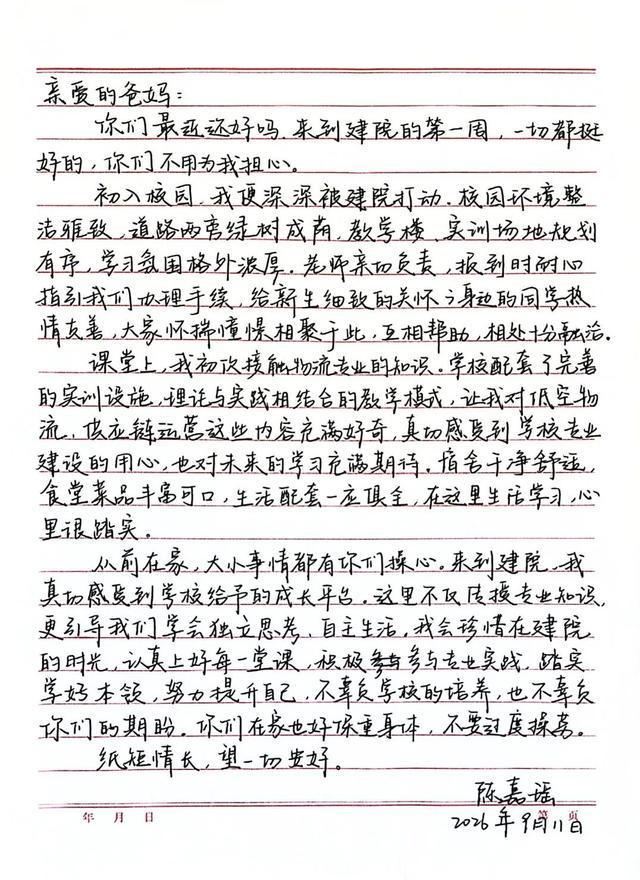 亲爱的爸妈：
你们最近还好吗，来到建院的第一周，一切都挺
好的，你们不用为我担心。
初入校园，我便深深被建院打动。校园环境整
洁雅致，道路两旁绿树成荫，教学楼、实训场地规划
有序，学习氛围格外浓厚。老师亲切负责，报到时耐心
指引我们办理手续，给新生细致的关怀；身边的同学热
情友善，大家怀揣憧憬相聚于此，互相帮助，相处十分融洽。
课堂上，我初次接触物流专业的知识。学校配套了完善
的实训设施，理论与实践相结合的教学模式，让我对低空物
流、供应链运营这些内容充满好奇，真切感受到学校专业
建设的用心，也对未来的学习充满期待。宿舍干净舒适，
食堂菜品丰富可口，生活配套一应俱全，在这里生活学习，心
里很踏实。
从前在家，大小事情都有你们操心。来到建院，我
真切感受到学校给予的成长平台。这里不仅传授专业知识，
更引导我们学会独立思考、自主生活。我会珍惜在建院
的时光，认真上好每一堂课，积极参与专业实践，踏实
学好本领，努力提升自己，不辜负学校的培养，也不辜负
你们的期盼。你们在家也好保重身体，不要过度操劳。
纸短情长，望一切安好。
陈嘉瑶
2026年9月11日
年 月 日 第 页